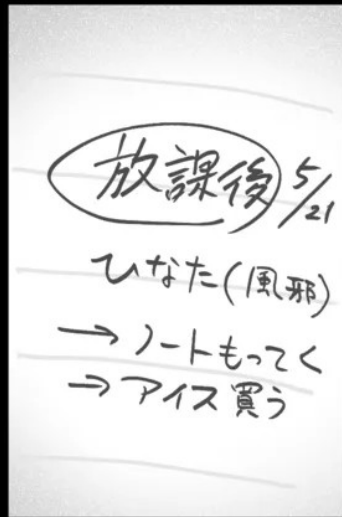 放課後 5/21
ひなた(風邪)
→ノートもってく
→アイス買う